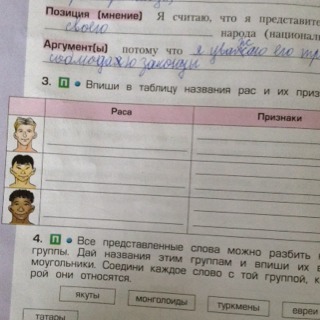 Позиция [мнение] Я считаю, что я представите
своего народа (национальн
Аргумент(ы) потому что я уважаю его тр
соблюдаю законы
3. П • Впиши в таблицу названия рас и их приз
Раса Признаки
4. П • Все представленные слова можно разбить
группы. Дай названия этим группам и впиши их в
моугольники. Соедини каждое слово с той группой, к
рой они относятся.
якуты монголоиды туркмены евреи
татары